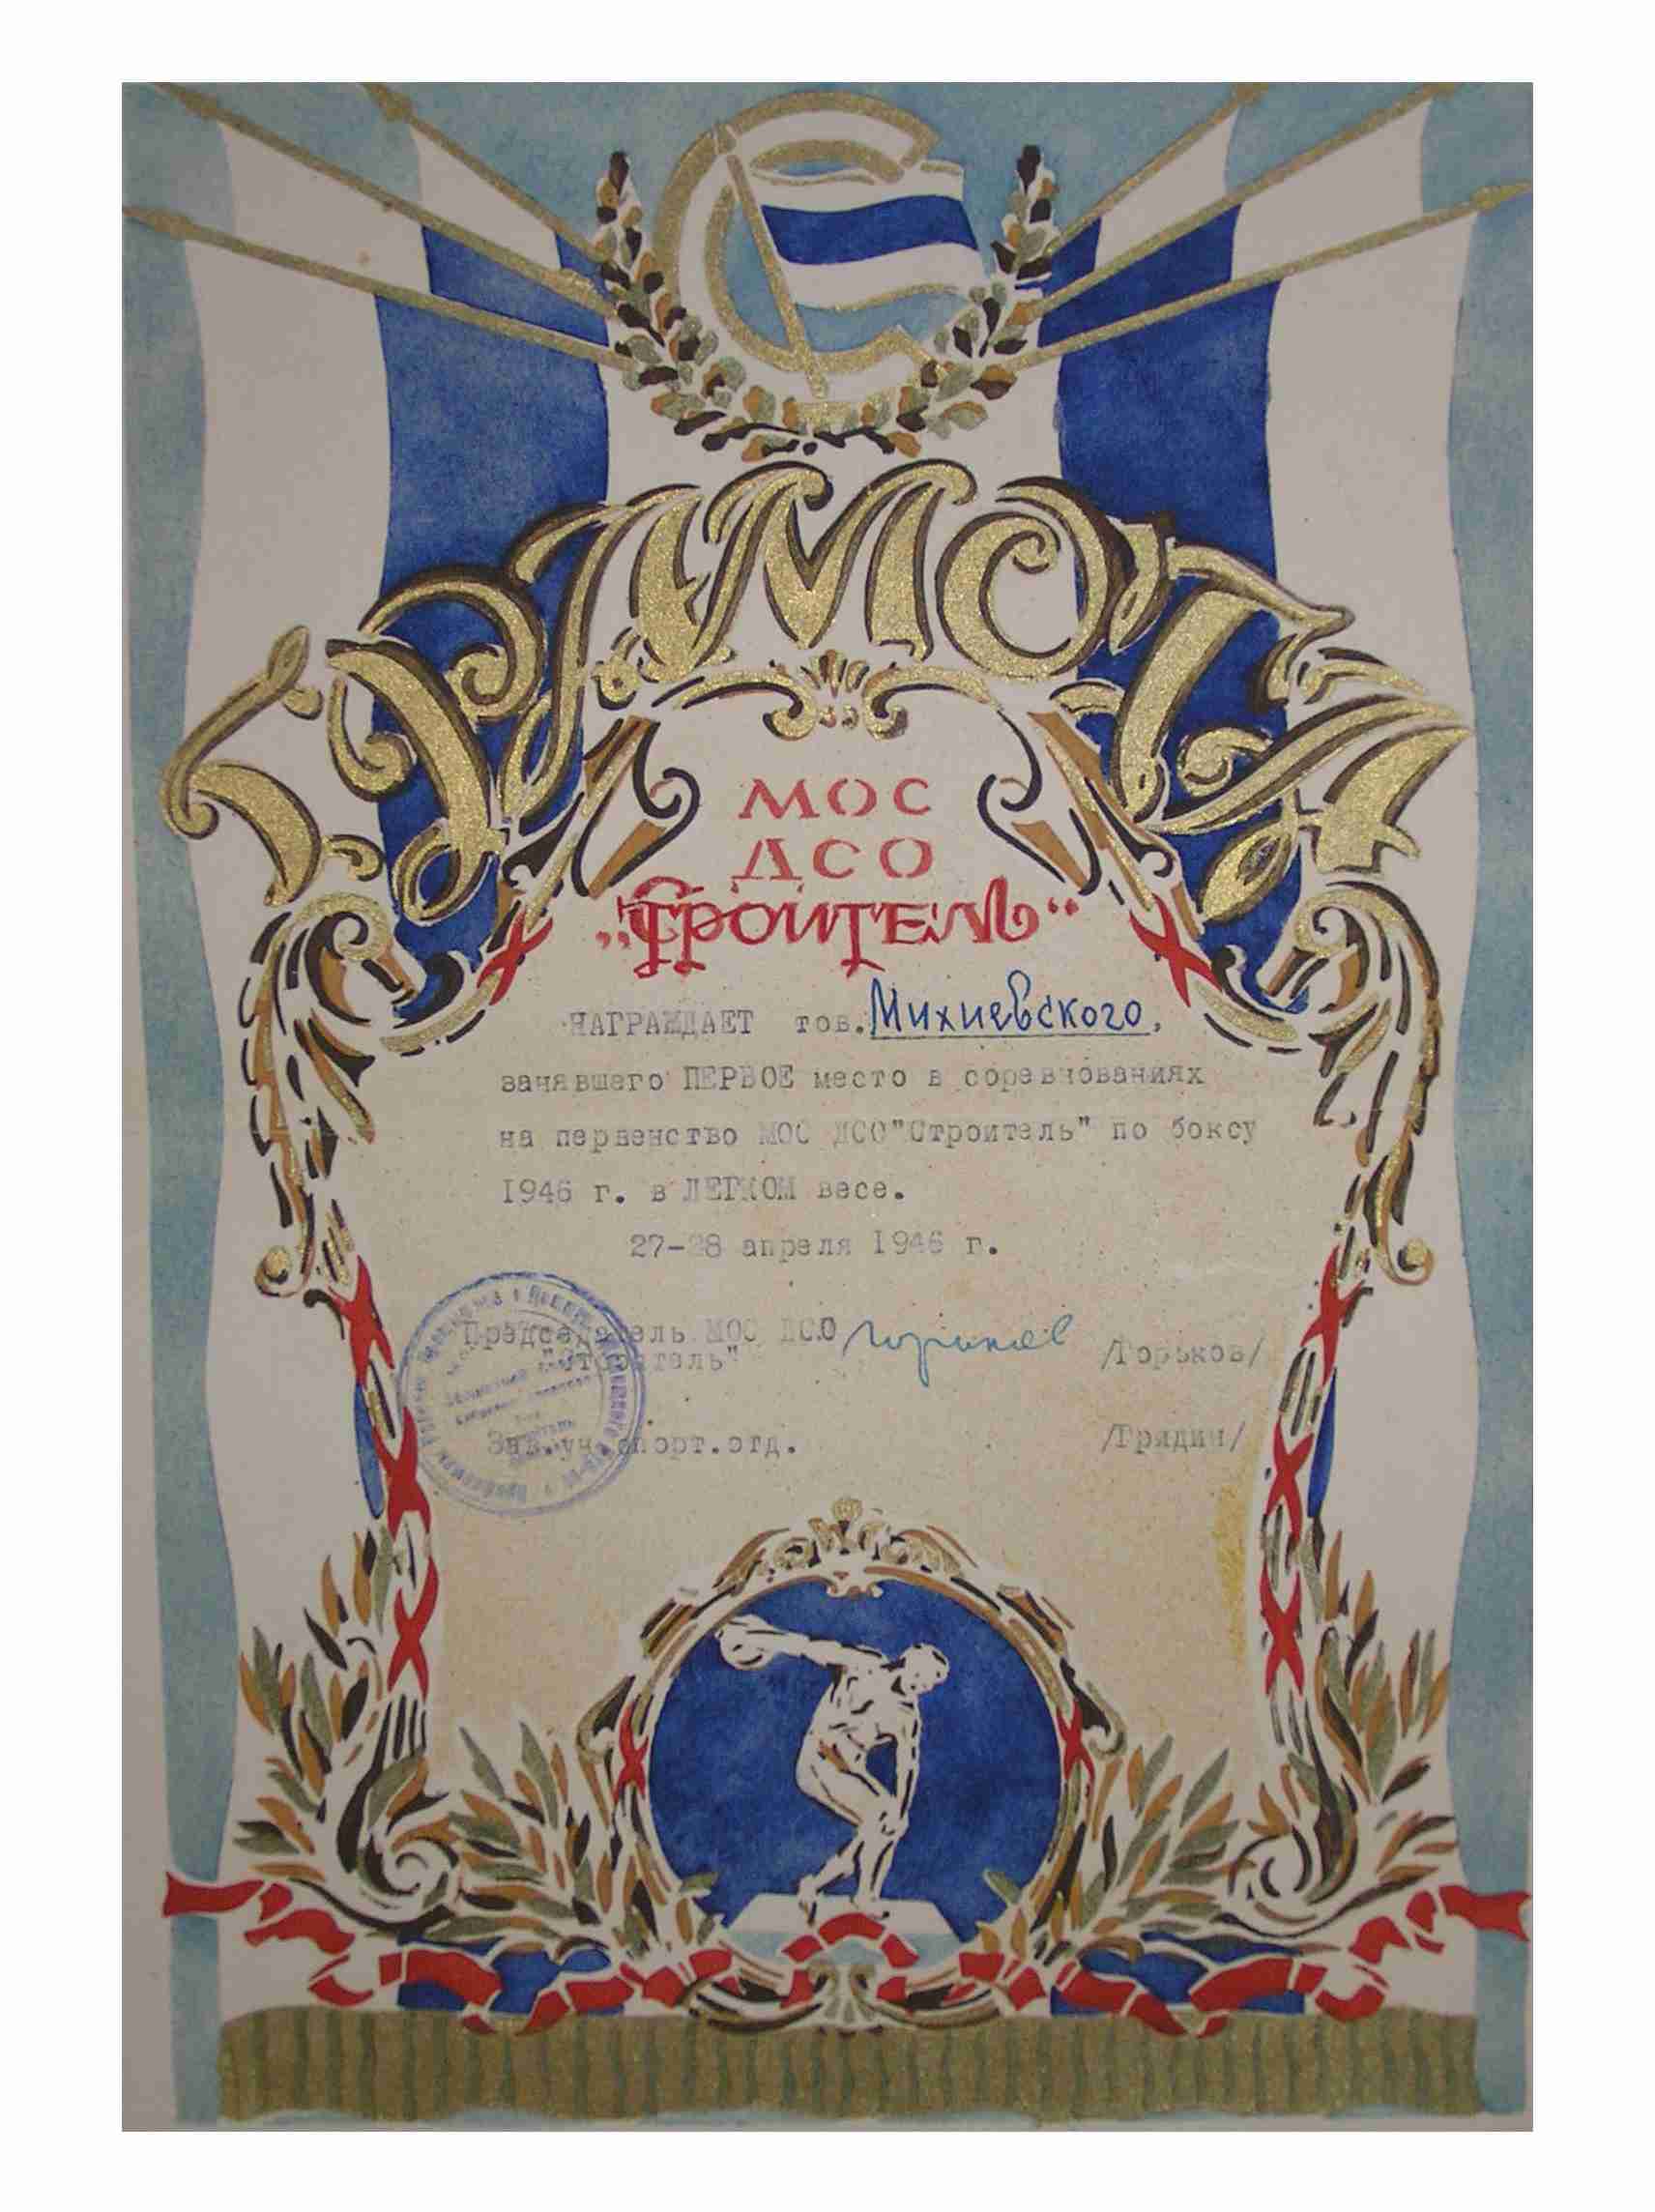 ГРАМОТА
МОС
ДСО
„СТРОИТЕЛЬ“
НАГРАЖДАЕТ тов. Михневского,
занявшего ПЕРВОЕ место в соревнованиях
на первенство МОС ДСО"Строитель" по боксу
1946 г. в ЛЕГКОМ весе.
27-28 апреля 1946 г.
Председатель МОС ДСО Горьков /Горьков/
"Строитель"
Зав.уч.спорт.отд. /Грядин/